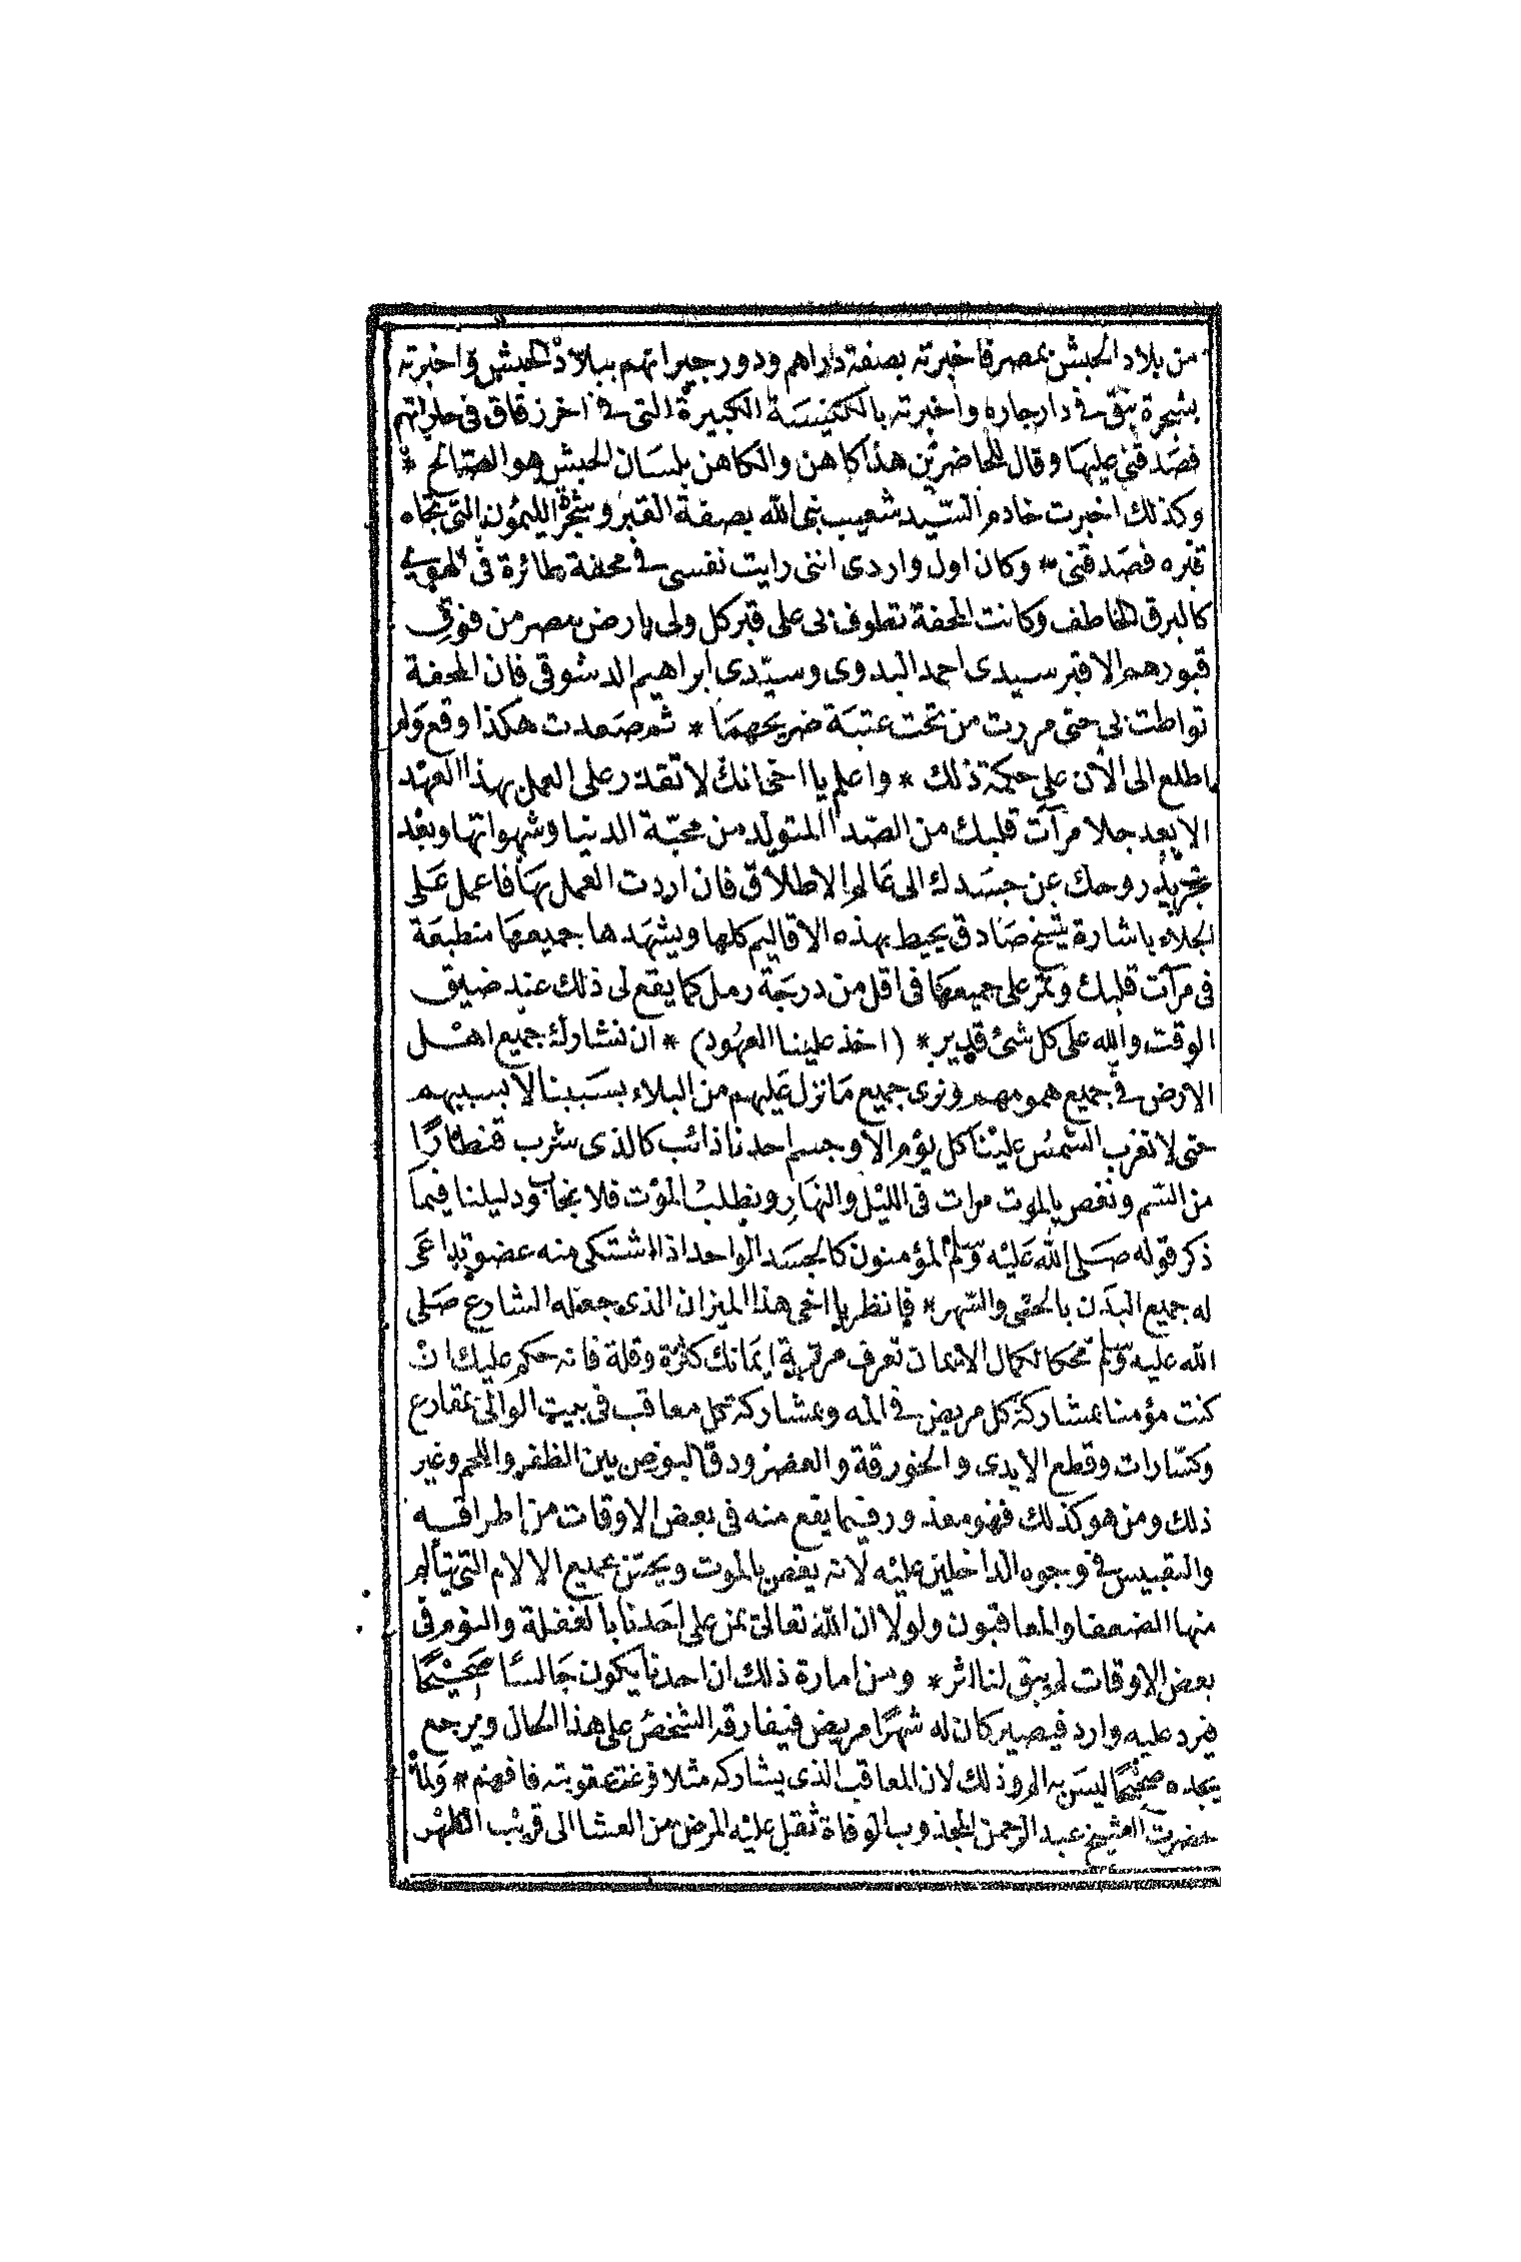 من بلاد الحبش بمصر فاخبرته بصفة داراهم ودور جيرانهم ببلاد الحبش واخبرته
بشجرة نبق في دار جاره واخبرته بالكنيسة الكبيرة التي في اخر زقاق في حارتهم
فصدقني عليها وقال للحاضرين هذا كاهن والكاهن بلسان الحبش هو الصالح *
وكذلك اخبرت خادم السيد شعيب نبي الله بصفة القبر وشجرة الليمون التي تجاه
قبره فصدقني * وكان اول واردى انني رايت نفسي في محفة طائرة في الهوى
كالبرق الخاطف وكانت المحفة تطوف بى على قبر كل ولى بارض مصر من فوق
قبورهم الا قبر سيدى احمد البدوى وسيّدى ابراهيم الدسوقى فان المحفة
تواطت بي حتى مررت من تحت عتبة ضريحهما * ثم صعدت هكذا وقع ولم
اطلع الى الآن على حكمة ذلك * واعلم يا اخى انك لا تقدر على العمل بهذا العهد
الا بعد جلا مرآت قلبك من الصدا المتولد من محبّة الدنيا وشهواتها وبعد
تجريد روحك عن جسدك الى عالم الاطلاق فان اردت العمل بها فاعمل على
الجلاء باشارة شيخ صادق يحيط بهذه الاقاليم كلها ويشهدها جميعها منطبعة
فى مرآت قلبك وتمر على جميعها فى اقل من درجة رمل كما يقع لى ذلك عند ضيق
الوقت والله على كل شئ قدير * (اخذ علينا العهود) * ان نشارك جميع اهل
الارض في جميع همومهم ونرى جميع ما نزل عليهم من البلاء بسببنا لا بسببهم
حتى لا تغرب الشمس علينا كل يوم الا وجسم احدنا ذائب كالذى شرب قنطارًا
من السم ونغص بالموت مرات فى الليل والنهار ونطلب الموت فلا نجاب ودليلنا فيما
ذكر قوله صلى الله عليه وسلم المؤمنون كالجسد الواحد اذا اشتكى منه عضو تداعى
له جميع البدن بالحمى والسهر * فانظر يا اخى هذا الميزان الذى جعله الشارع صلى
الله عليه وسلم محكا لكمال الايمان تعرف مرتبة ايمانك كثرة وقلة فانه حكم عليك ان
كنت مؤمنا بمشاركة كل مريض في المه وبمشاركة كل معاقب فى بيت الوالى بمقارع
وكسّارات وقطع الايدى والخورقة والعصر ودق البوص بين الظفر واللحم وغير
ذلك ومن هو كذلك فهو معذور فيما يقع منه فى بعض الاوقات من اطراقه
والتعبيس في وجوه الداخلين عليه لانه يغص بالموت ويحتن بجميع الالام التي يتألم
منها الضعفا والمعاقبون ولولا ان الله تعالى يمن على احدنا بالغفلة والنوم فى
بعض الاوقات لم يبق لنا اثر * ومن امارة ذلك ان احدنا يكون جالسًا صحيحًا
فيرد عليه وارد فيصير كان له شهرًا مريض فيفارقه الشخص على هذا الحال ويرجع
يجده صحيحًا ليس به الم وذلك لان المعاقب الذى يشاركه مثلا فرغت عقوبته فافهم * ولما
حضرت الشيخ عبد الرحمن المجذوب الوفاة ثقل عليه المرض من العشا الى قريب الظهر